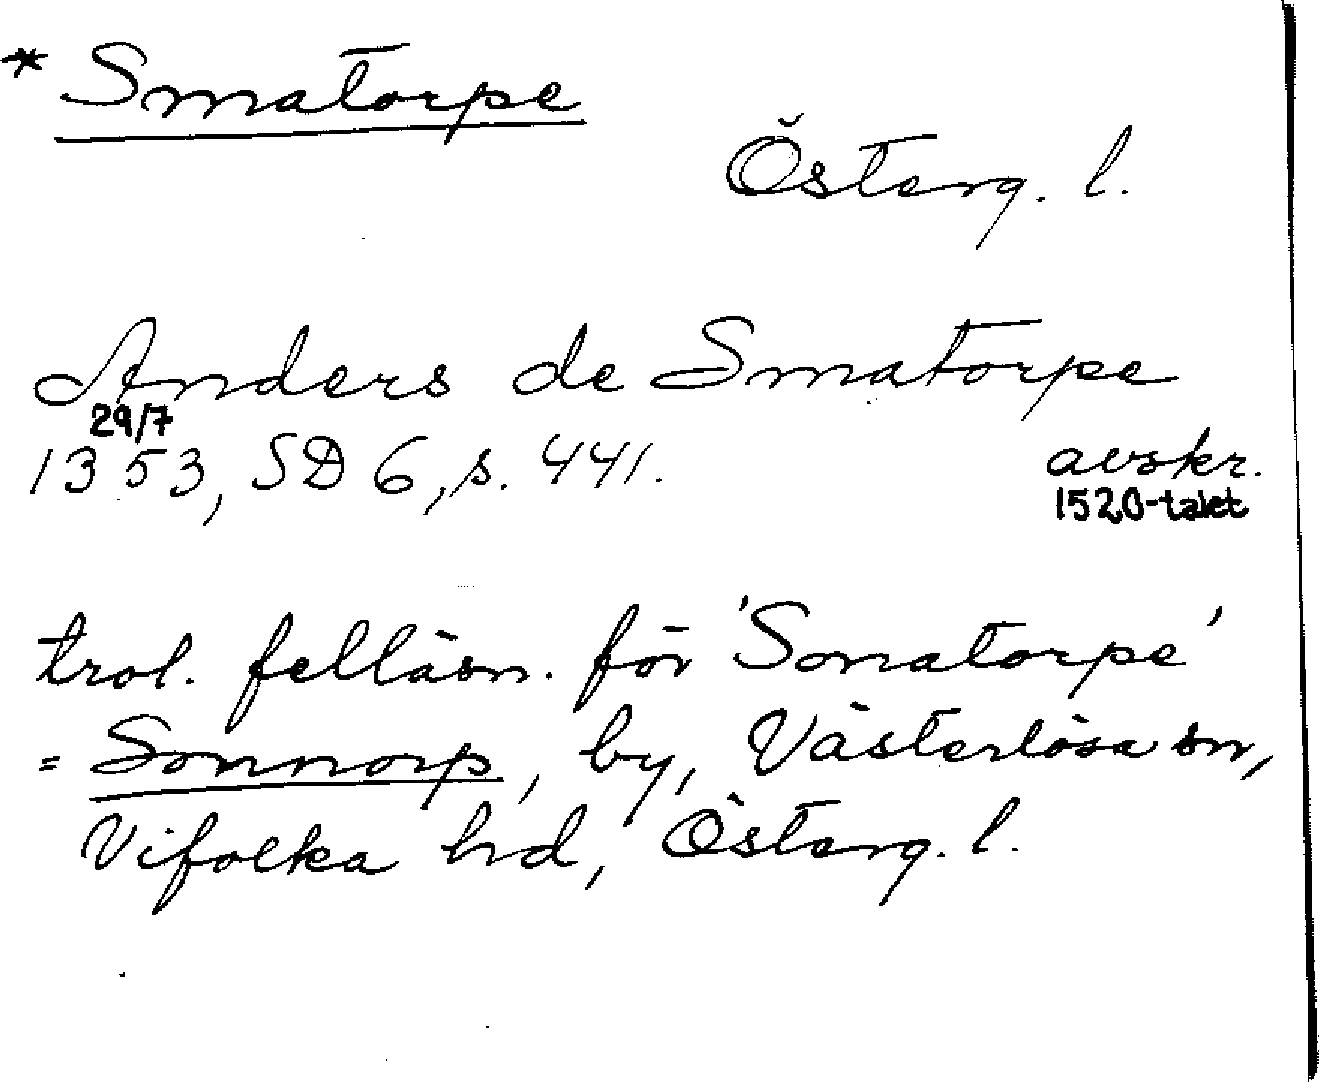 * Smatorpe
Österg. l.
Anders de Smatorpe
29/7
1353, SD 6, s. 441.
avskr.
1520-talet
trol. felläsn. för 'Sonatorpe'
= Sonnorp, by, Västerlösa sn,
Vifolka hd, Österg. l.